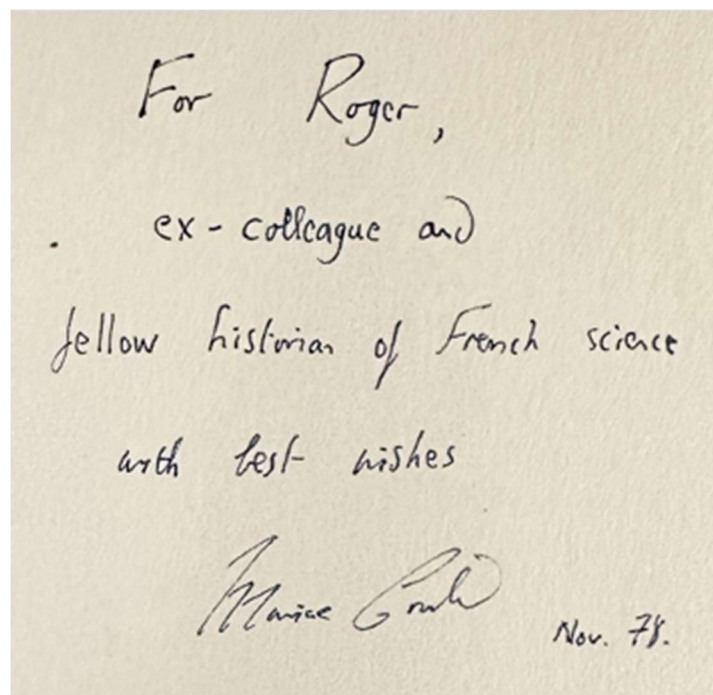 For Roger,
ex-colleague and
fellow historian of French science
with best wishes
Maurice
Nov. 78.